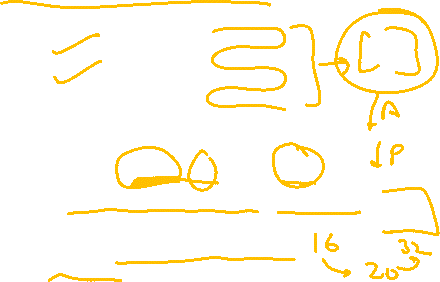 A
P
16
20
32